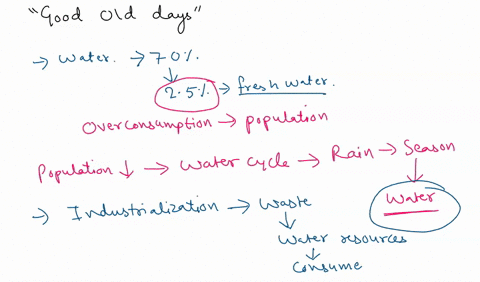 "Good old days"
→ Water. → 70%.
↓
2.5% → fresh water.
Overconsumption → population
Population ↓ → Water cycle → Rain → Season
↓
Water
→ Industrialization → Waste
↓
Water resources
↓
Consume